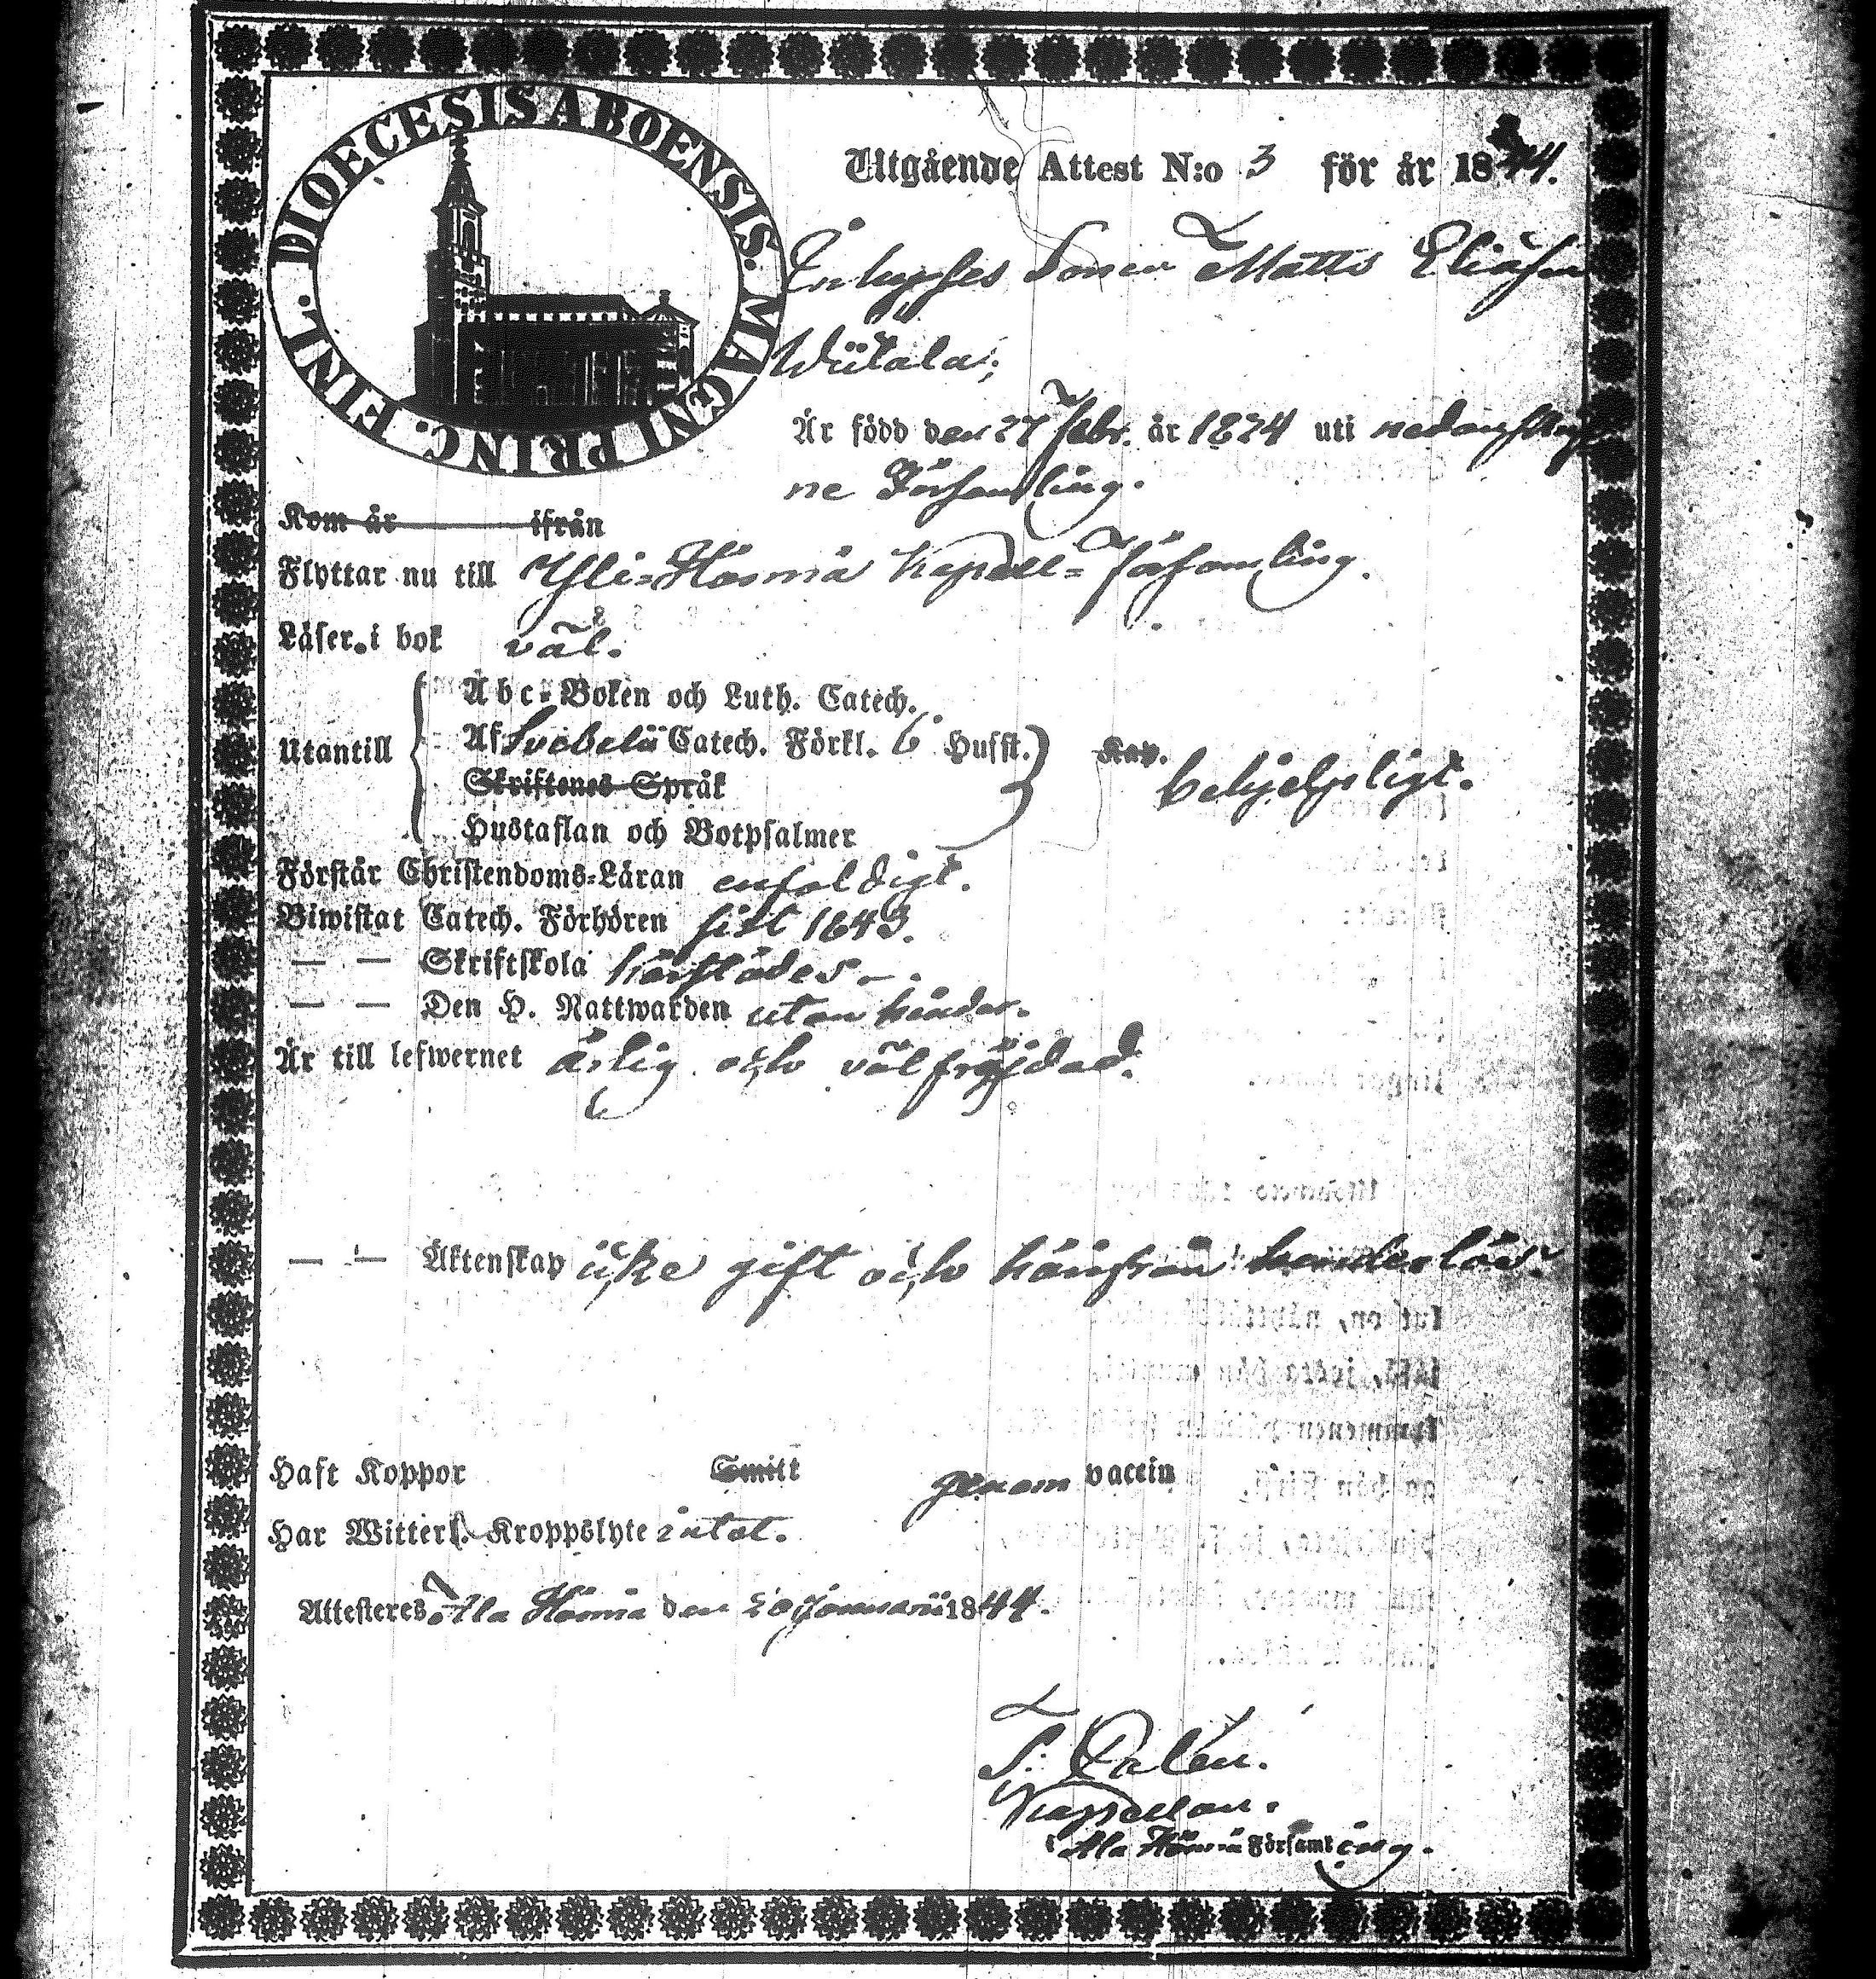 DIOECESIS ABOENSIS. MAGNI PRINC. FINL.
Utgående Attest N:o 3 för år 1844.
Inhyses Sonen Matts Eliasson
Wiitala;
Är född den 27 Febr. år 1824 uti nedanskrif
ne Församling.
Kom år ifrån
Flyttar nu till Yli-Härmä Kapell-församling.
Läser i bok väl.
Utantill
Abc-Boken och Luth. Catech.
Af Svebelii Catech. Förkl. 6 Hufst.
Skriftenes Språk
Hustaflan och Botpsalmer
Kap. behjelpligt.
Förstår Christendoms-Läran enfaldigt.
Biwistat Catech. Förhören sist 1843.
— — Skriftskola härstädes —.
— — Den H. Nattwarden utan hinder.
Är till lefwernet ärlig och välfräjdad.
— — Äktenskap icke gift och härifrån hinderlös.
Haft Koppor Smitt genom vaccin
Har Witterl. Kroppslyte intet.
Attesteres Ala Härmä den 20 Januarii 1844.
Kapellan.
i Ala Härmä Församling.